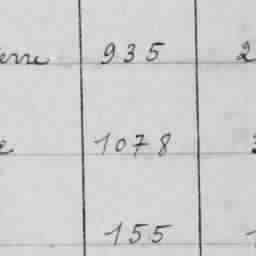 erre 935 2
e 1078
155